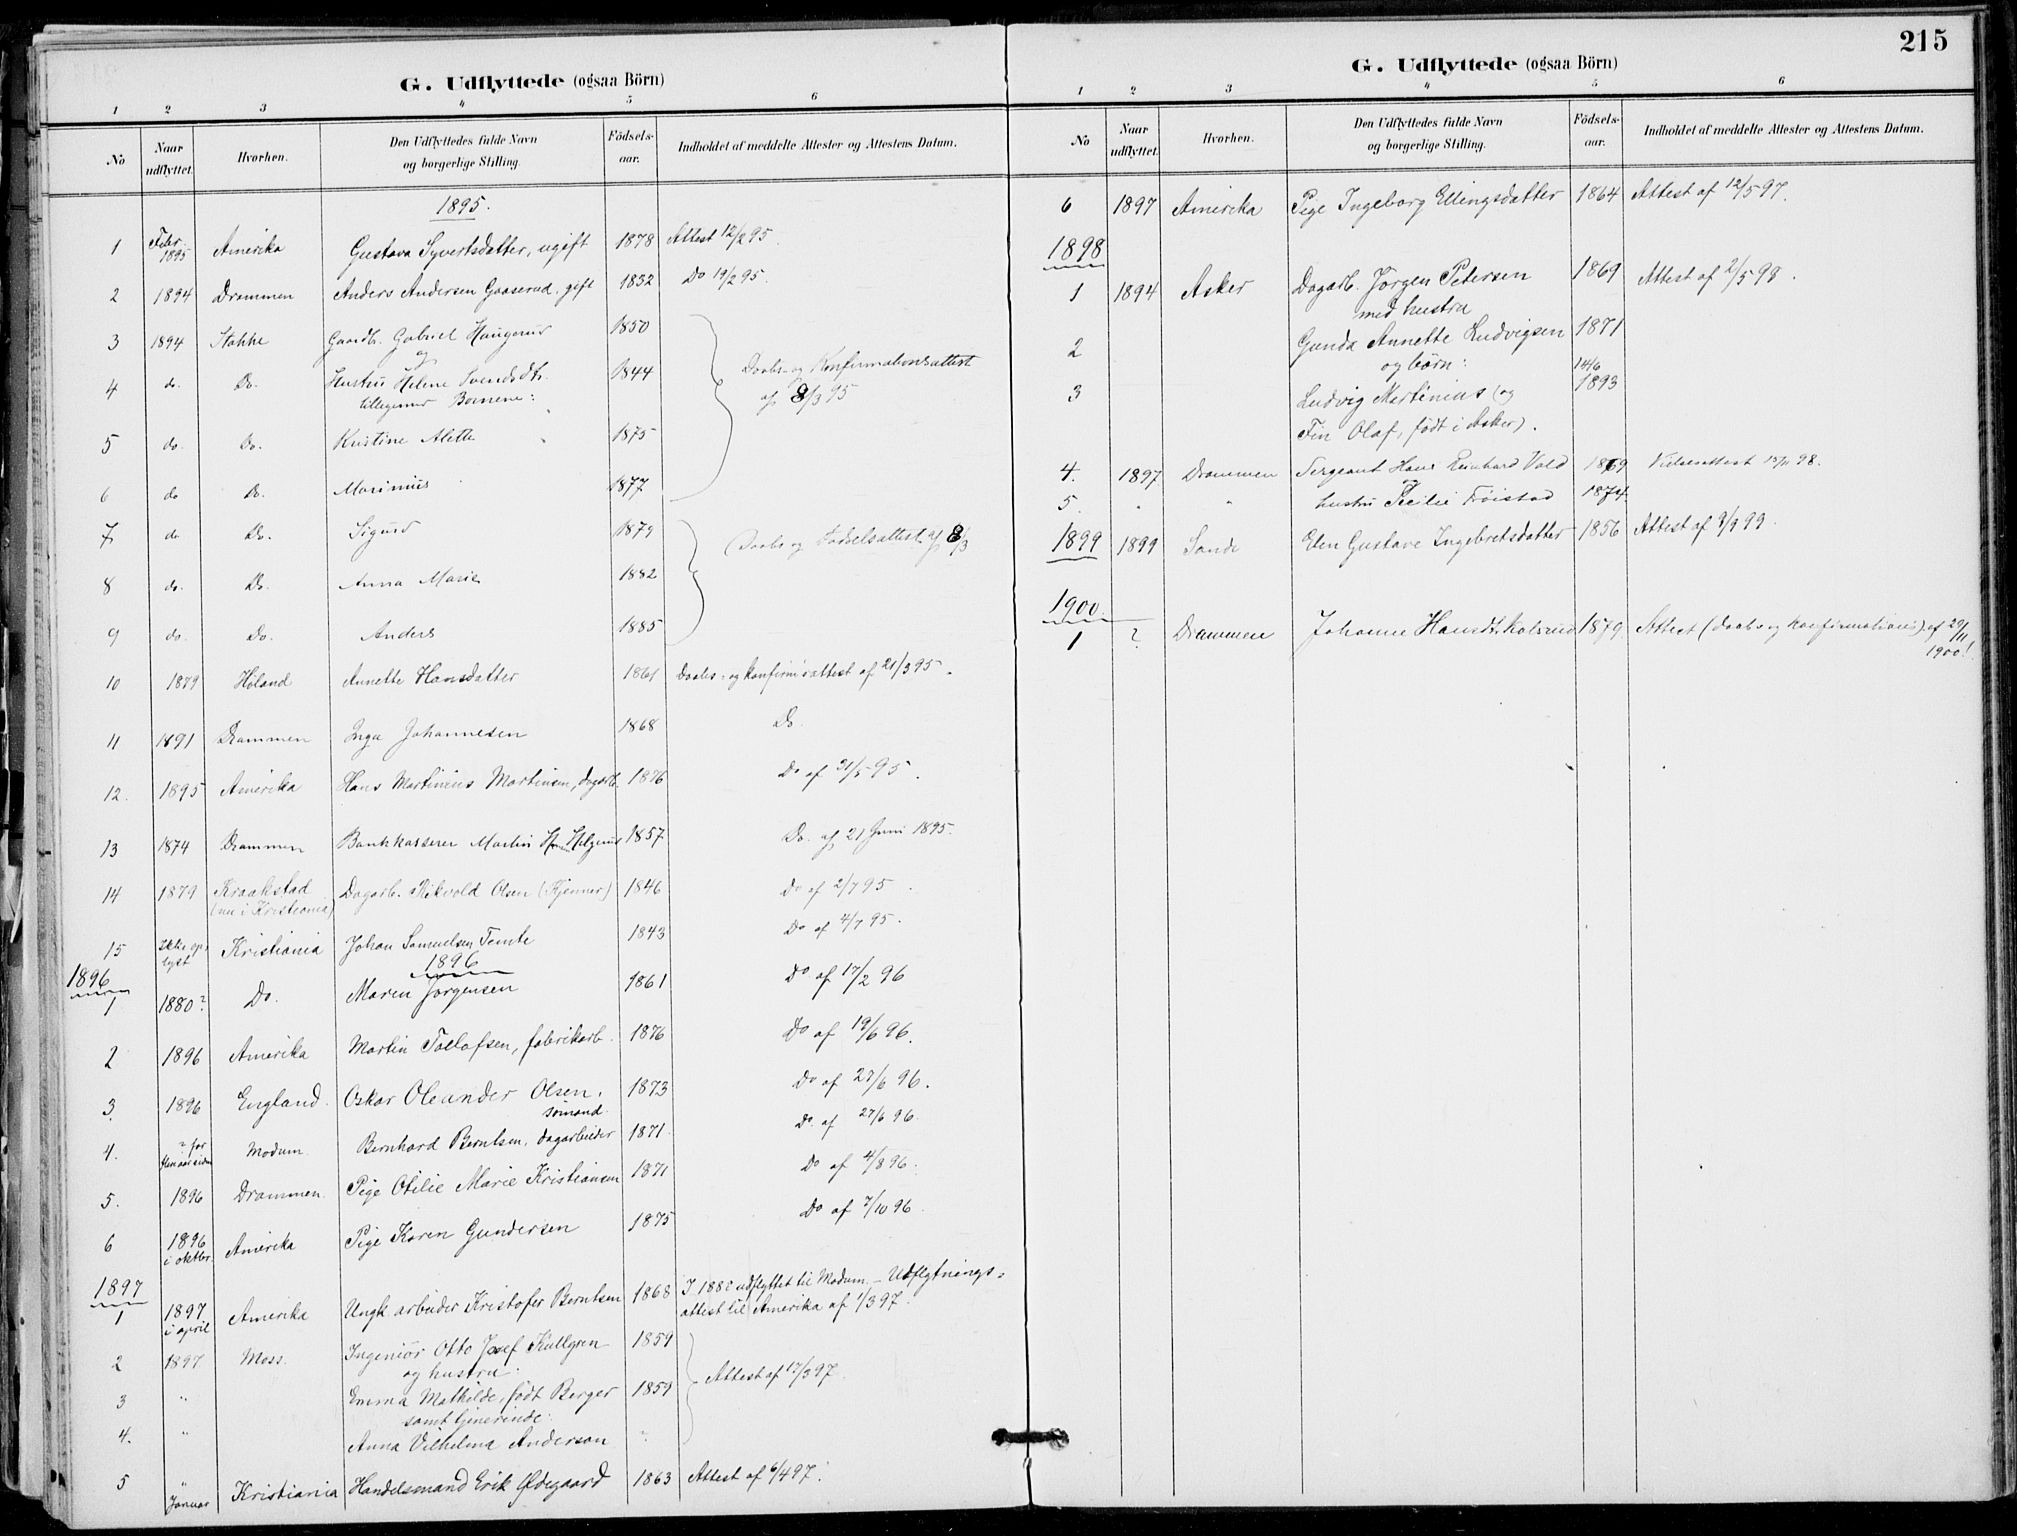 G. Udflyttede (ogsaa Börn)
1 2 3 4 5 6
No Naar udflyttet. Hvorhen. Den Udflyttedes fulde Navn og borgerlige Stilling. Födsels-aar. Indholdet af meddelte Attester og Attestens Datum.
1895.
1 Febr. 1895 Amerika Gustava Syvertsdatter, ugift 1878 Attest 12/2 95.
2 1894 Drammen Anders Andersen Gaaserud, gift 1852 Do 19/2 95.
3 1894 Stokke Gaardb. Gabriel Haugerud 1850
og
4 do. Do. Hustru Helene Svendsdtr. 1844 Daabs- og Konfirmationsattest
tilligemed Børnene: af 8/3 95
5 do. Do. Kristine Alette 1875
6 do Do. Marinius 1877
7 do Do. Sigurd 1879 Daabs og Fødselsattest af 8/3
8 do. Do. Anna Marie 1882
9 do. Do. Anders 1885
10 1879 Høland Annette Hansdatter 1861 Daabs- og konfirm's attest af 21/3 95.
11 1891 Drammen Inga Johannesen 1868 Do.
12. 1895 Amerika Hans Martinius Martinsen, dagarb. 1876 Do af 31/5 95.
13 1874 Drammen Bankkasserer Martin Helgerud 1857 Do. af 21 Juni 1895.
14 1879 Kraakstad Dagarb. Rikvold Olsen (Kjenner) 1846 Do af 2/7 95.
(nu i Kristiania)
15 Ikke op-lyst Kristiania Johan Samuelsen Tomte 1843 Do af 4/7 95.
1896 1896
1 1880? Do. Maren Jørgensen 1861 Do af 17/2 96
2 1896 Amerika Martin Tollofsen, fabrikarb. 1876 Do af 19/6 96.
3 1896 England. Oskar Oleander Olsen, 1873 Do af 27/6 96.
sømand.
4. ? for flere aar siden Modum. Bernhard Berntsen, dagarbeider 1871. Do. af 27/6 96.
5. 1896 Drammen. Pige Otilie Marie Kristiansen 1871 Do af 4/8 96.
6 1896 i oktbr. Amerika Pige Karen Gundersen 1875 Do af 7/10 96.
1897
1 1897 i april Amerika Ungk. arbeider Kristofer Berntsen 1868 I 1882 udflyttet til Modum. - Udflytnings-
attest til Amerika af 1/3 97.
2 1897 Moss. Ingeniør Otto Josef Kullgren 1859
og hustru: Attest af 17/3 97.
3 " Emma Mathilde, født Berger 1859
samt tjenerinde:
4. " Anna Vilhelmina Anderson "
5 " Januar Kristiania Handelsmand Erik Ødegaard 1863 Attest af 6/4 97.
215
G. Udflyttede (ogsaa Börn)
1 2 3 4 5 6
No Naar udflyttet. Hvorhen. Den Udflyttedes fulde Navn og borgerlige Stilling. Födsels-aar. Indholdet af meddelte Attester og Attestens Datum.
6 1897 Amerika Pige Ingeborg Ellingsdatter 1864 Attest af 12/5 97.
1898
1 1894 Asker Dagarb. Jørgen Petersen 1869 Attest af 2/5 98.
med hustru
2 Gunda Annette Ludvigsen 1871
og børn:
3 Ludvig Martinius (og 14/6 1893
Fin Olaf, født i Asker).
4. 1897 Drammen Sergeant Hans Reinhard Vold 1869 Vielsesattest 15/11 98.
5. " " og hustru Cecilie Frøistad 1874
1899 1899 Sande Elen Gustave Ingebretsdatter 1856 Attest af 9/9 99.
1900.
1 ? Drammen Johanne Hansdtr. Kolsrud 1879 Attest (daabs- og konfirmations) af 29/11
1900!